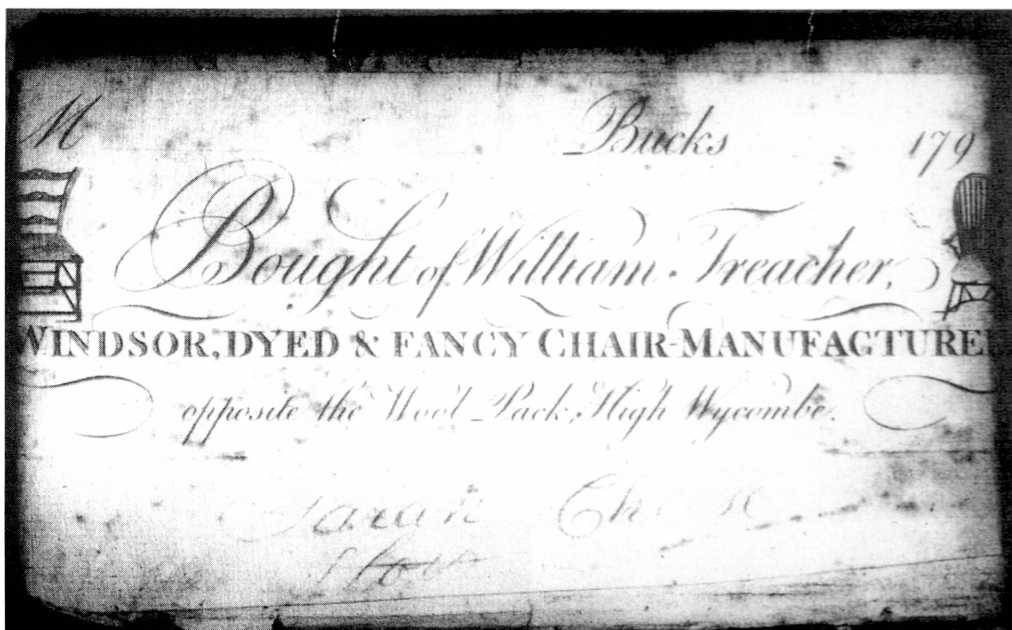 M Bucks 179
Bought of William Treacher,
WINDSOR, DYED & FANCY CHAIR-MANUFACTURE
opposite the Wool-Pack, High Wycombe.
Sarah